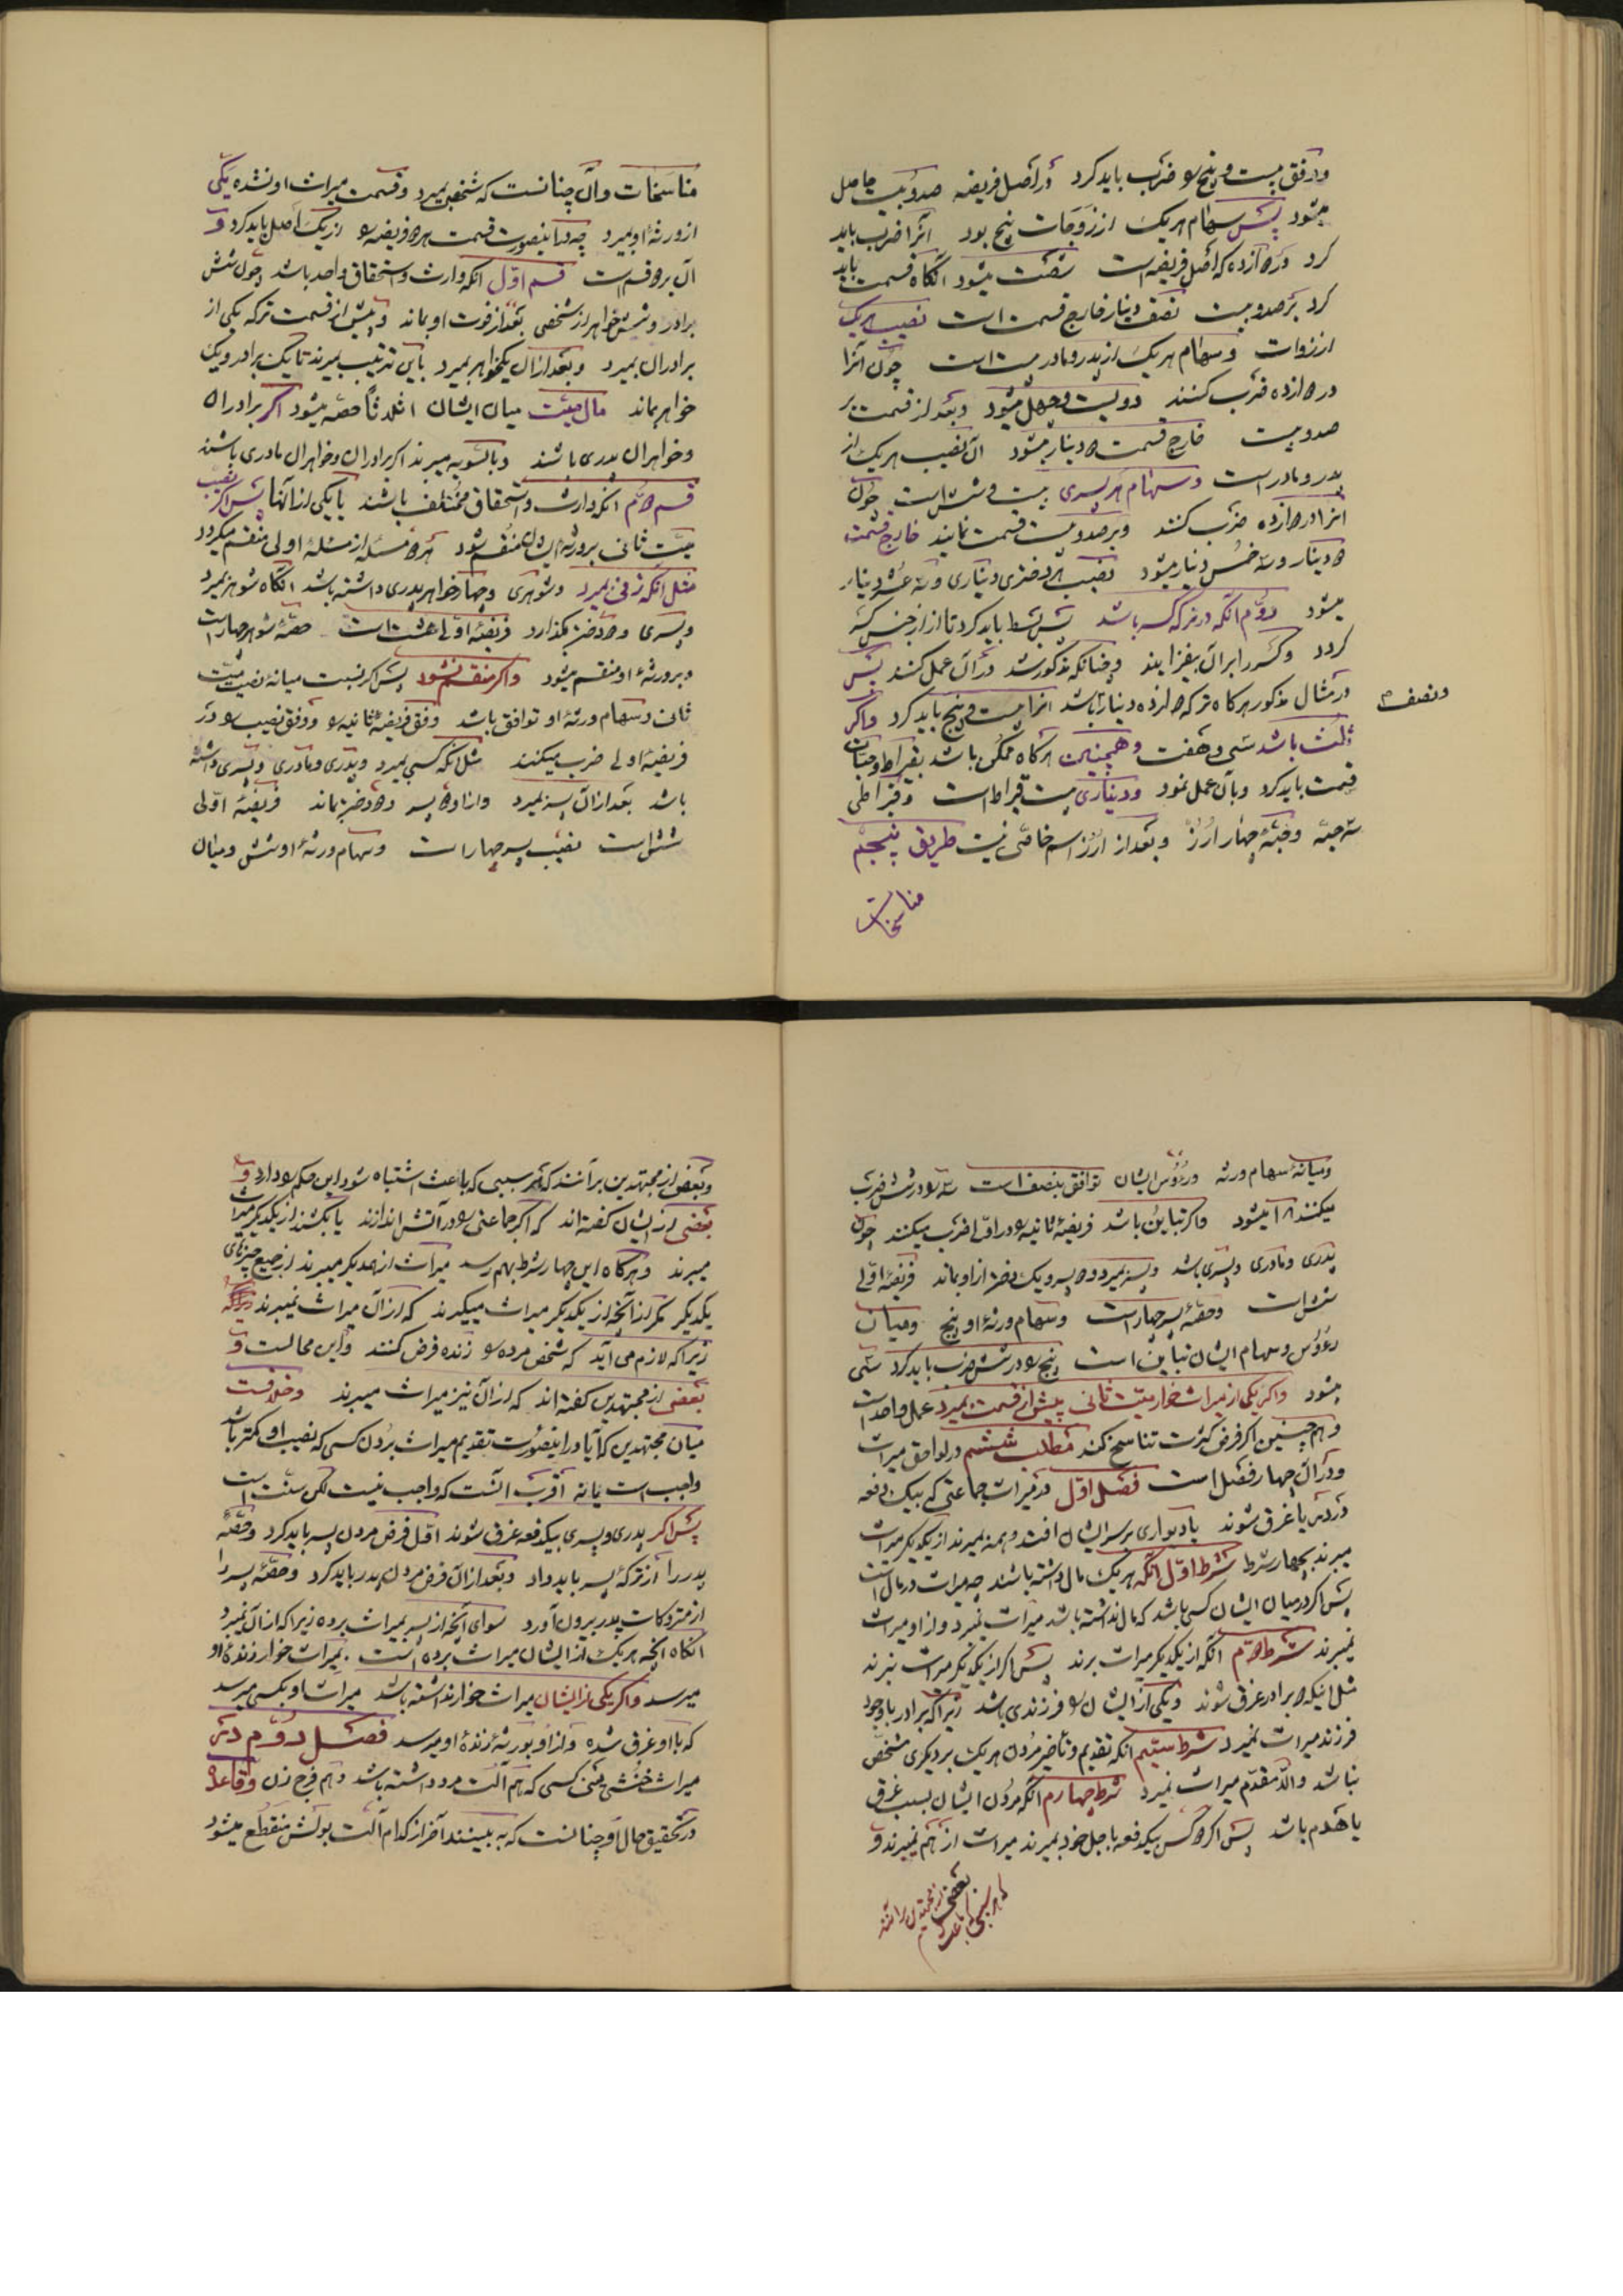 و وفق بیست و پنج را ضرب باید کرد در اصل فریضه صد و بیست حاصل
میشود پس سهام هریک از زوجات پنج بود آنرا ضرب باید
کرد در دوازده که اصل فریضه است شصت میشود آنگاه قسمت باید
کرد بر صد و بیست نصف دینار خارج قسمت است نصیب هریک
از زوجات و سهام هریک از پدر و مادر بیست است چون آنرا
در دوازده ضرب کنند دویست و چهل میشود و بعد از قسمت بر
صد و بیست خارج قسمت دو دینار میشود آن نصیب هریک از
پدر و مادر است و سهام هر پسری بیست و شش است چون
آنرا در دوازده ضرب کنند و بر صد و بیست قسمت نمایند خارج قسمت
دو دینار و سه خمس دینار میشود نصیب هر دختری دیناری و سه عشر دینار
میشود دوم آنکه در ترکه کسر باشد پس بسط باید کرد تا از جنس کسر
گردد و کسر را بر آن بیفزایند و چنانکه مذکور شد در آن عمل کنند پس
در مثال مذکور هرگاه ترکه دوازده دینار باشد آنرا بیست و پنج باید کرد و اگر
و نصف
ثلث باشد سی و هفت و همچنین هرگاه ممکن باشد بقیراط و حبات
قسمت باید کرد و بآن عمل نمود و دیناری بیست قیراط است و قیراطی
سه حبه و حبه چهار ارز و بعد از ارز اسم خاصی نیست طریق پنجم
مناسخات
مناسخات و آن چنانست که شخصی بمیرد و قسمت میراث او نشده یکی
از ورثه او بمیرد چه در اینصورت قسمت هر دو فریضه را از یک اصل باید کرد و
آن بر دو قسم است قسم اول آنکه وارث و استحقاق واحد باشد چون شش
برادر و شش خواهر از شخصی بعد از فوت او بماند و پیش از قسمت ترکه یکی از
برادران بمیرد و بعد از آن یکخواهر بمیرد باین ترتیب بمیرند تا یک برادر و یک
خواهر بماند مال میت میان ایشان اثلاثا حصه میشود اگر برادران
و خواهران پدری باشند و بالسویه میبرند اگر برادران و خواهران مادری باشند
قسم دوم آنکه وارث و استحقاق مختلف باشند یا یکی از آنها پس اگر نصیب
میت ثانی بر ورثه ایشان منقسم شود هر دو مسئله از مسئله اولی منقسم میگردد
مثل آنکه زنی بمیرد و شوهری و چهار خواهر پدری داشته باشد آنگاه شوهر بمیرد
و پسری و دو دختر بگذارد فریضه اولی هشت است حصه شوهر چهار است
و بر ورثه او منقسم میشود و اگر منقسم نشود پس اگر نسبت میانه نصیب میت
ثانی و سهام ورثه او توافق باشد وفق فریضه ثانیه را و وفق نصیب را در
فریضه اولی ضرب میکنند مثل آنکه کسی بمیرد و پدری و مادری و پسری داشته
باشد بعد از آن پسر بمیرد و از او دو پسر و دو دختر بماند فریضه اولی
شش است نصیب پسر چهار است و سهام ورثه او شش و میان
و میانه سهام ورثه و رؤس ایشان توافق بنصف است سه را در شش ضرب
میکنند ۱۸ میشود و اگر تباین باشد فریضه ثانیه را در اولی ضرب میکنند چون
پدری و مادری و پسری باشد و پسر بمیرد و دو پسر و یک دختر از او بماند فریضه اولی
شش است و حصه پسر چهار است و سهام ورثه او پنج و میان
رؤس و سهام ایشان تباین است پنج را در شش ضرب باید کرد سی
میشود و اگر یکی از میراث خوار میت ثانی پیش از قسمت بمیرد عمل واحد است
و هم چنین اگر فرض کثرت تناسخ کند مطلب ششم در لواحق میراث
و در آن چهار فصل است فصل اول در میراث جماعتی که بیک دفعه
در دریا غرق شوند یا دیواری بر سر ایشان افتد و همه بمیرند از یکدیگر میراث
میبرند بچهار شرط شرط اول آنکه هریک مال داشته باشند چه میراث در مال است
پس اگر در میان ایشان کسی باشد که مال نداشته باشد میراث نمیبرد و از او میراث
نمیبرند شرط دوم آنکه از یکدیگر میراث برند پس اگر از یکدیگر میراث نبرند
مثل اینکه دو برادر غرق شوند و یکی از ایشان را فرزندی باشد زیرا که برادر با وجود
فرزند میراث نمیبرد شرط سیم آنکه تقدیم و تأخیر مردن هریک بر دیگری مشخص
نباشد والا مقدم میراث نمیبرد شرط چهارم آنکه مردن ایشان بسبب غرق
یا هدم باشد پس اگر دو کس بیکدفعه باجل خود بمیرند میراث از هم نمیبرند و
بعضی از مجتهدین برآنند
که هر سببی که باعث
و بعضی از مجتهدین برآنند که هر سببی که باعث اشتباه شود این حکم را دارد و
بعضی از ایشان گفته اند که اگر جماعتی را در آتش اندازند یا بکشند از یکدیگر میراث
میبرند و هرگاه این چهار شرط بهم رسد میراث از همدیگر میبرند از جمیع چیزهای
یکدیگر مگر از آنچه از یکدیگر میراث میگیرند که از آن میراث نمیبرند
زیرا که لازم می آید که شخص مرده را زنده فرض کنند و این محالست و
بعضی از مجتهدین گفته اند که از آن نیز میراث میبرند و خلافست
میان مجتهدین که آیا در اینصورت تقدیم میراث بردن کسی که نصیب او کمتر باشد
واجب است یا نه اقرب آنست که واجب نیست لکن سنت است
پس اگر پدری و پسری بیکدفعه غرق شوند اول فرض مردن پسر باید کرد و حصه
پدر را از ترکه پسر باید داد و بعد از آن فرض مردن پدر باید کرد و حصه پسر را
از متروکات پدر بیرون آورد سوای آنچه از پسر بمیراث برده زیرا که از آن نمیبرد
آنگاه آنچه هریک از ایشان میراث برده است بمیراث خوار زنده او
میرسد و اگر یکی از ایشان میراث خوار نداشته باشد میراث او بکسی میرسد
که با او غرق شده و از او بورثه زنده او میرسد فصل دوم در
میراث خنثی یعنی کسی که هم آلت مرد داشته باشد و هم فرج زن و قاعده
در تحقیق حال او چنانست که به بینند آخر از کدام آلت بولش منقطع میشود